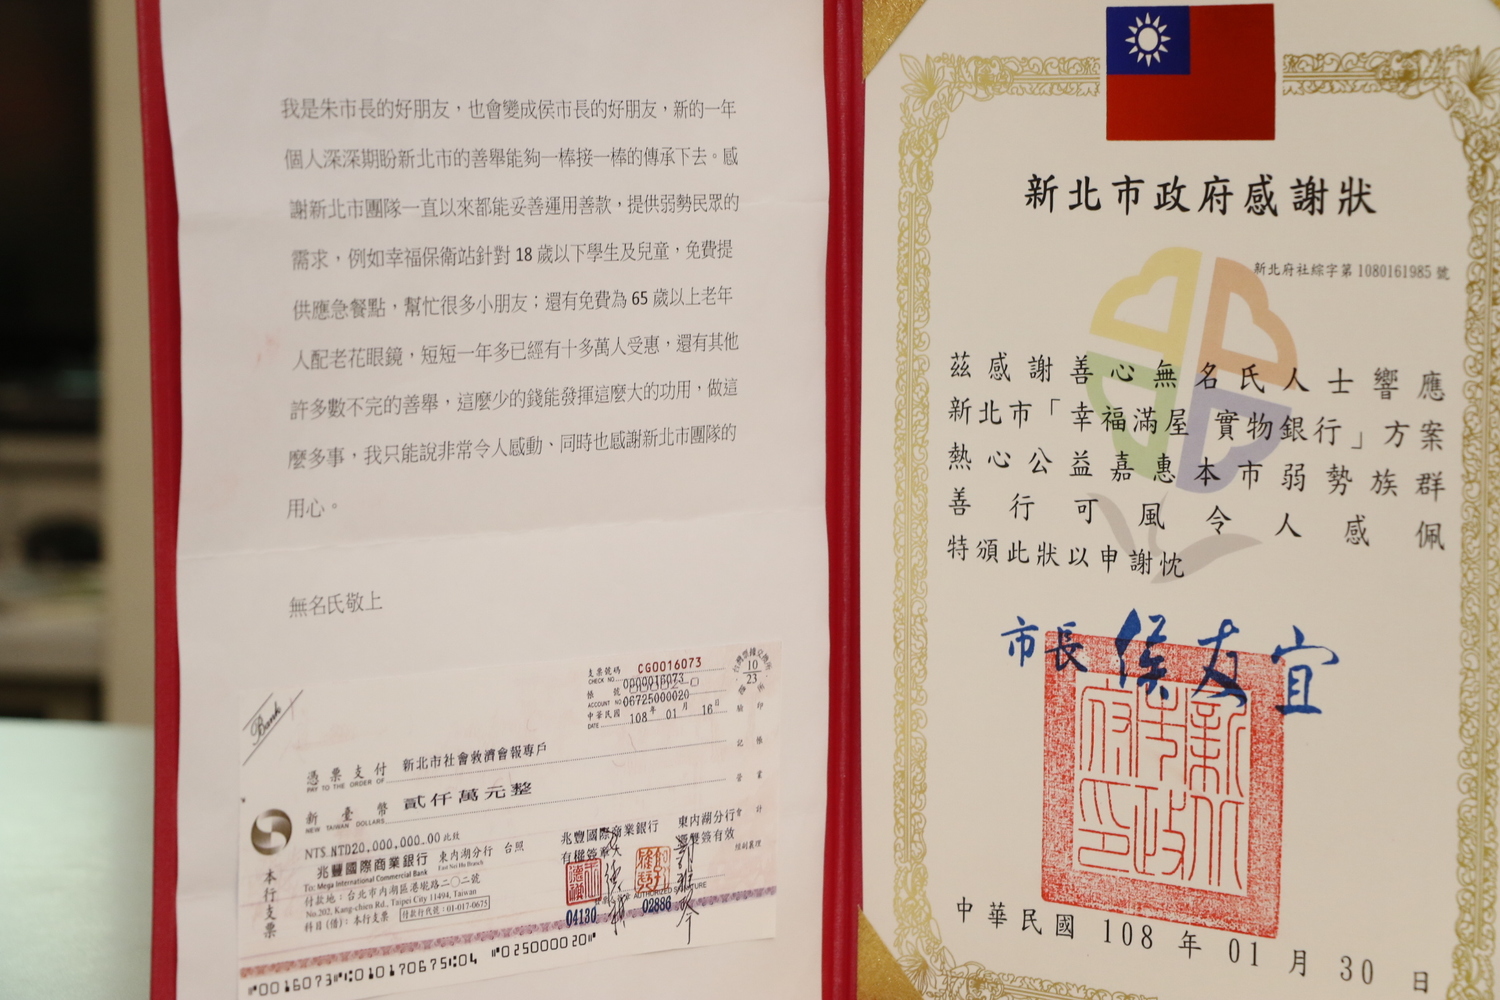 我是朱市長的好朋友，也會變成侯市長的好朋友，新的一年
個人深深期盼新北市的善舉能夠一棒接一棒的傳承下去。感
謝新北市團隊一直以來都能妥善運用善款，提供弱勢民眾的
需求，例如幸福保衛站針對 18 歲以下學生及兒童，免費提
供應急餐點，幫忙很多小朋友；還有免費為 65 歲以上老年
人配老花眼鏡，短短一年多已經有十多萬人受惠，還有其他
許多數不完的善舉，這麼少的錢能發揮這麼大的功用，做這
麼多事，我只能說非常令人感動、同時也感謝新北市團隊的
用心。
無名氏敬上
Bank
支票號碼 CG0016073
CHECK NO. 0000016073
帳 號
ACCOUNT NO 06725000020
中華民國 108 年 01 月 16 日
DATE
10
23
憑票支付 新北市社會救濟會報專戶
PAY TO THE ORDER OF
新臺幣 貳仟萬元整
NEW TAIWAN DOLLARS
NT$ NTD20,000,000.00 此致
兆豐國際商業銀行 東內湖分行 台照
To: Mega International Commercial Bank East Nei Hu Branch
付款地：台北市內湖區港墘路二〇二號
No.202, Kang-chien Rd., Taipei City 11494, Taiwan
科目(借)：本行支票 付款行代號：01-017-0675
本行支票
兆豐國際商業銀行 東內湖分行
有權簽章人 雙簽有效
AUTHORIZED SIGNATURE
04130 02886
驗印
記帳
營業
會計
經副襄理
⑈0016073⑈⑆010170675⑆04 ⑈025000020⑈
新北市政府感謝狀
新北府社綜字第 1080161985 號
茲感謝善心無名氏人士響應
新北市「幸福滿屋 實物銀行」方案
熱心公益嘉惠本市弱勢族群
善行可風令人感佩
特頒此狀以申謝忱
市長 侯友宜
新北市政府印
中華民國 108 年 01 月 30 日